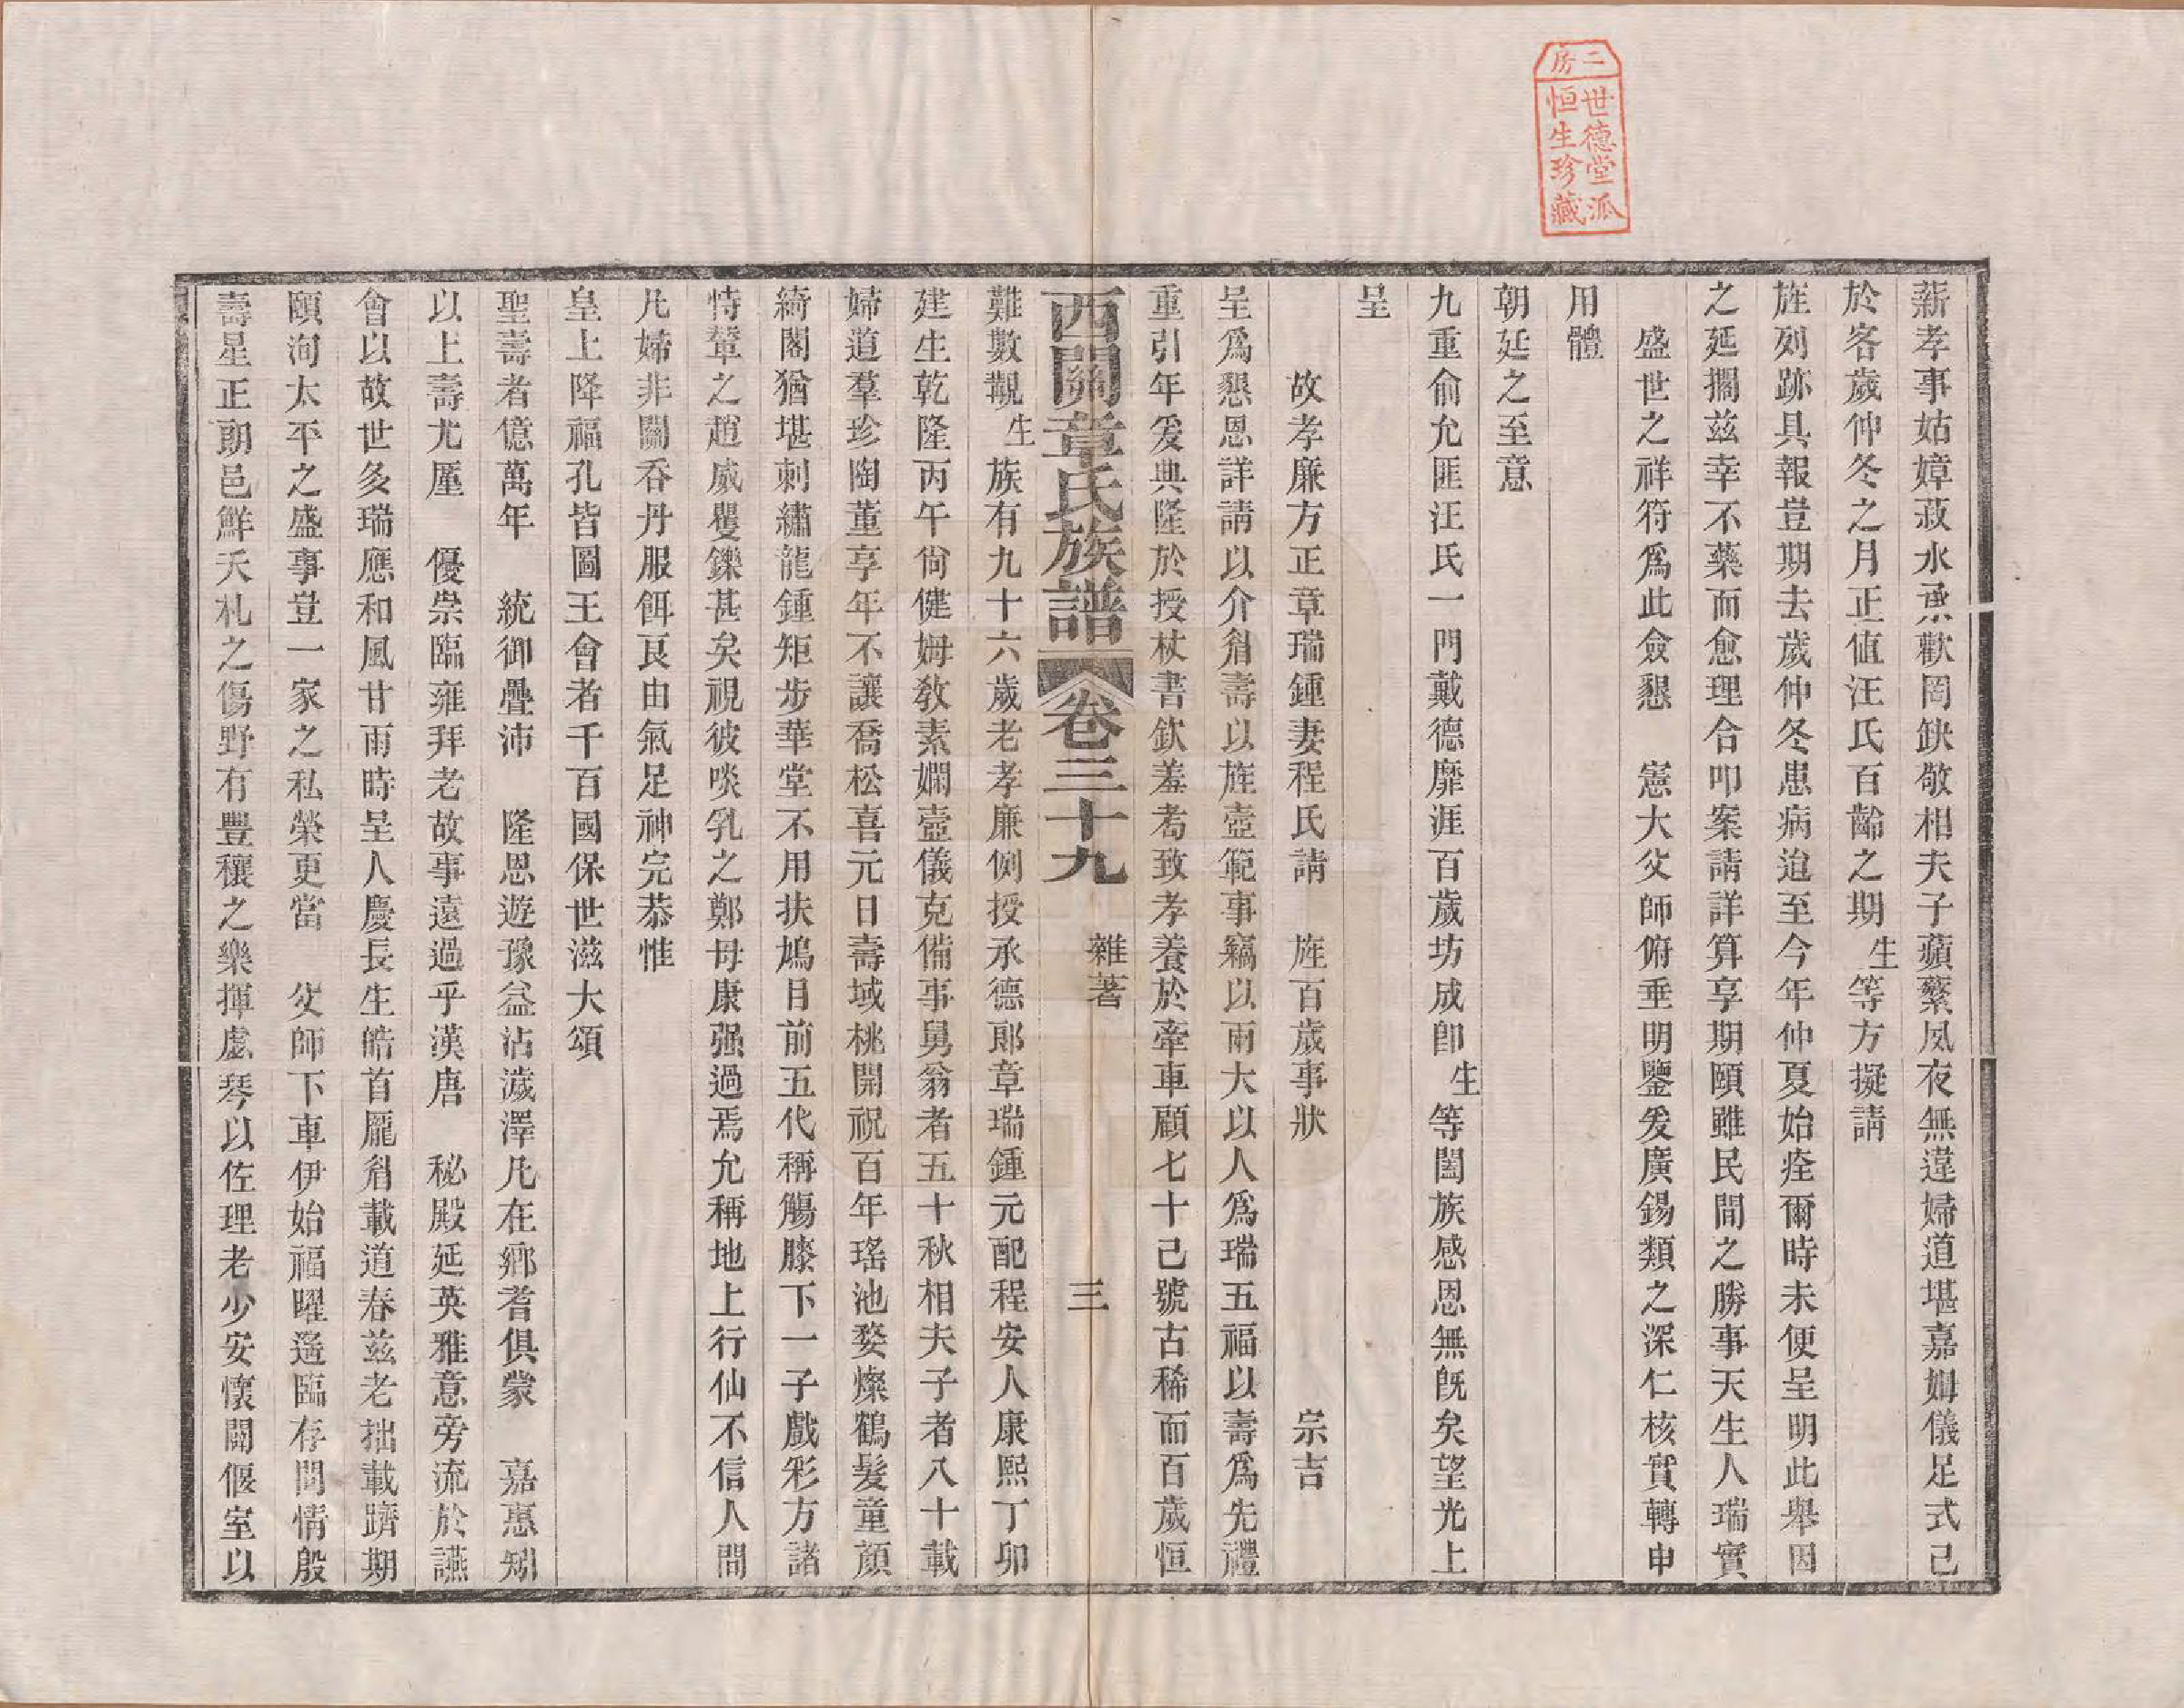 二房
世德堂派
恒生珍藏
薪孝事姑嫜菽水承歡罔缺敬相夫子蘋蘩夙夜無違婦道堪嘉姆儀足式已
於客歲仲冬之月正值汪氏百齡之期生等方擬請
旌列跡具報豈期去歲仲冬患病迨至今年仲夏始痊爾時未便呈明此舉因
之延擱兹幸不藥而愈理合叩案請詳算享期頤雖民間之勝事天生人瑞實
盛世之祥符爲此僉懇　憲大父師俯垂明鑒爰廣錫類之深仁核實轉申
用體
朝延之至意
九重俞允匪汪氏一門戴德靡涯百歲坊成卽生等闔族感恩無旣矣望光上
呈
故孝廉方正章瑞鍾妻程氏請　旌百歲事狀　宗吉
呈爲懇恩詳請以介眉壽以旌壼範事竊以兩大以人爲瑞五福以壽爲先禮
重引年爰典隆於授杖書欽羞耇致孝養於牽車顧七十已號古稀而百歲恒
西關章氏族譜　卷三十九　雜著　三
難數覯生族有九十六歲老孝廉例授承德郞章瑞鍾元配程安人康熙丁卯
建生乾隆丙午尙健姆敎素嫻壼儀克備事舅翁者五十秋相夫子者八十載
婦道羣珍陶董享年不讓喬松喜元日壽域桃開祝百年瑤池婺燦鶴髮童顔
綺閣猶堪刺繡龍鍾矩步華堂不用扶鳩目前五代稱觴膝下一子戲彩方諸
恃輦之趙威矍鑠甚矣視彼啖乳之鄭母康强過焉允稱地上行仙不信人間
凡婦非關呑丹服餌艮由氣足神完恭惟
皇上降福孔皆圖王會者千百國保世滋大頌
聖壽者億萬年　統御疊沛　隆恩遊豫益沾濊澤凡在鄉耆俱蒙　嘉惠矧
以上壽尤厪　優崇臨雍拜老故事遠過乎漢唐　秘殿延英雅意旁流於讌
會以故世多瑞應和風甘雨時呈人慶長生皓首龐眉載道春兹老拙載躋期
頤洵太平之盛事豈一家之私榮更當　父師下車伊始福曜遥臨存問情殷
壽星正朗邑鮮夭札之傷野有豐穰之樂揮虙琴以佐理老少安懷闢偃室以